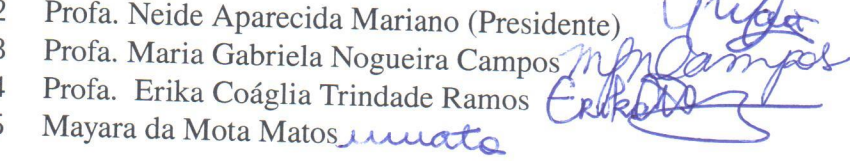 2 Profa. Neide Aparecida Mariano (Presidente)
3 Profa. Maria Gabriela Nogueira Campos MGNCampos
4 Profa. Erika Coáglia Trindade Ramos Erika
5 Mayara da Mota Matos